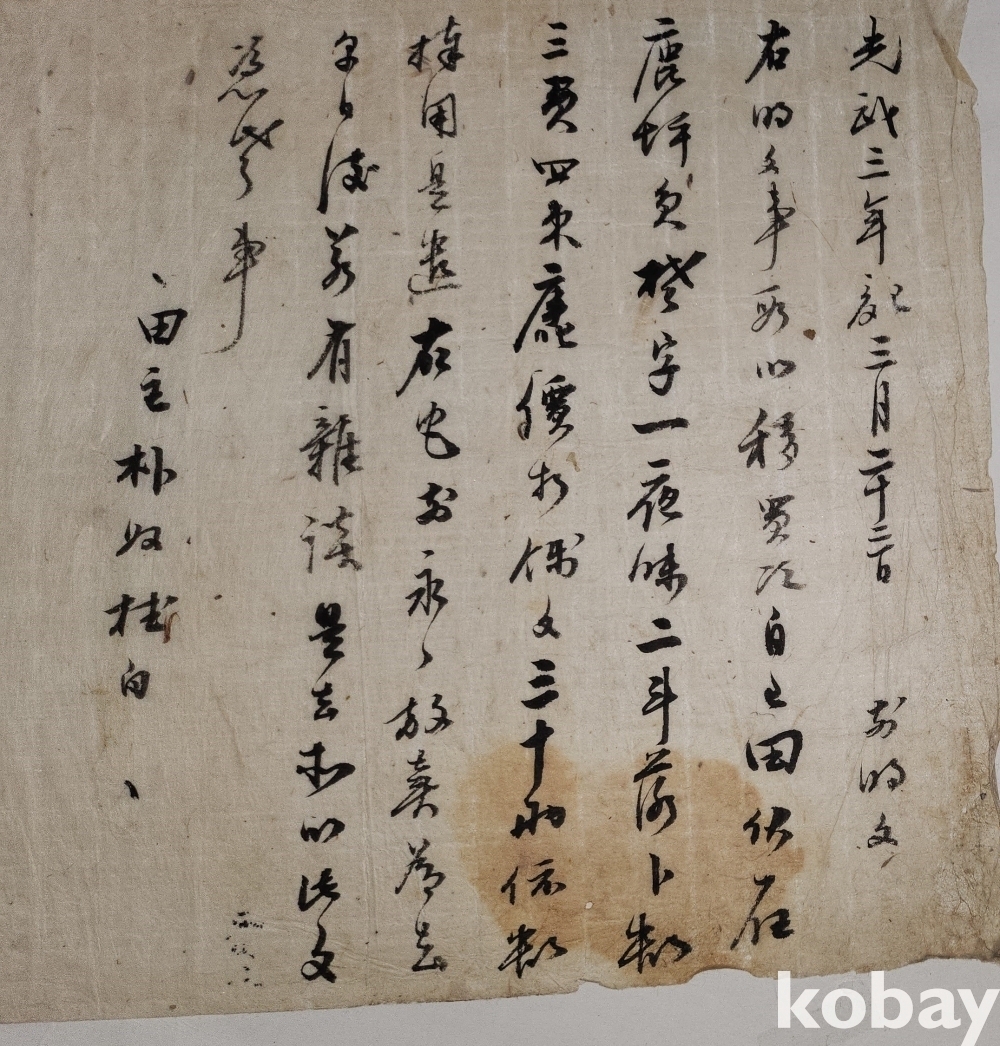 光武三年 三月二十三日 前明文
右明文事段以移買次自己田伏在
鹿坪員 字一夜味二斗落卜數
三負四束 價折 文三十兩依數
捧用是遣右宅前永〃放賣爲去
乎日後若有雜談是去木以此文
憑考事
田主朴奴 白
kobay